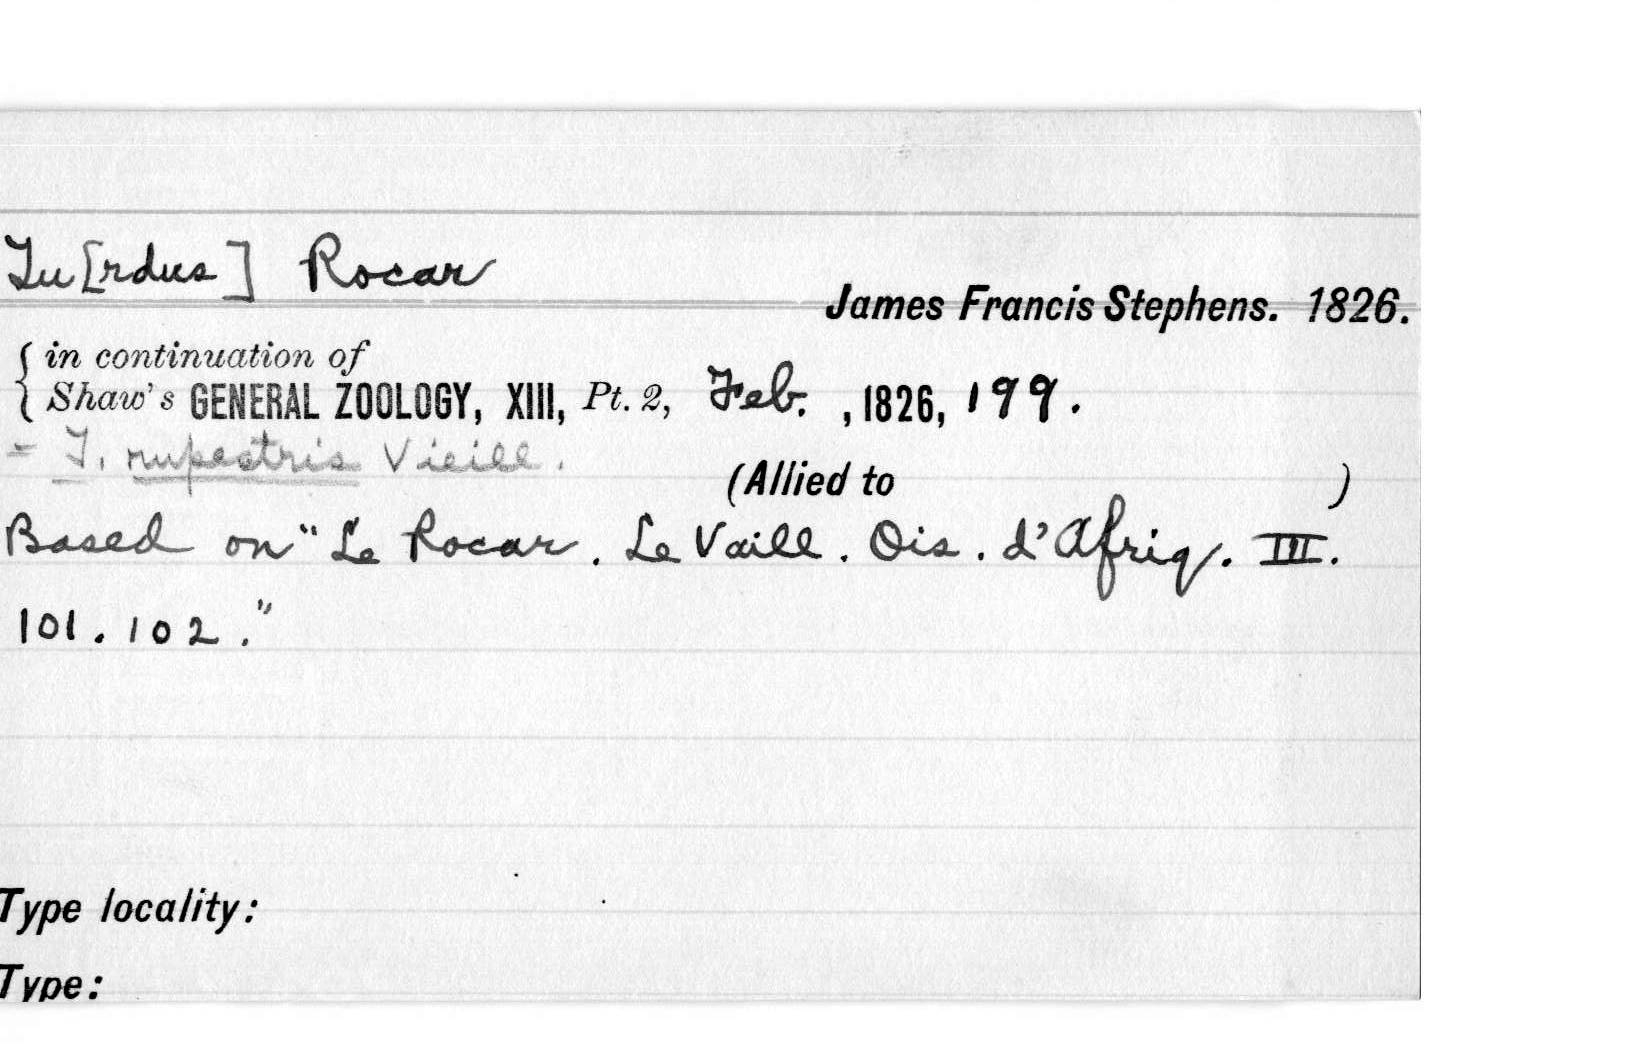 Tu[rdus] Rocar
James Francis Stephens. 1826.
{ in continuation of
Shaw's GENERAL ZOOLOGY, XIII, Pt. 2, Feb. , 1826, 199.
= T. rupestris Vieill.
(Allied to )
Based on "Le Rocar. Le Vaill. Ois. d'Afriq. III.
101. 102."
Type locality:
Type: